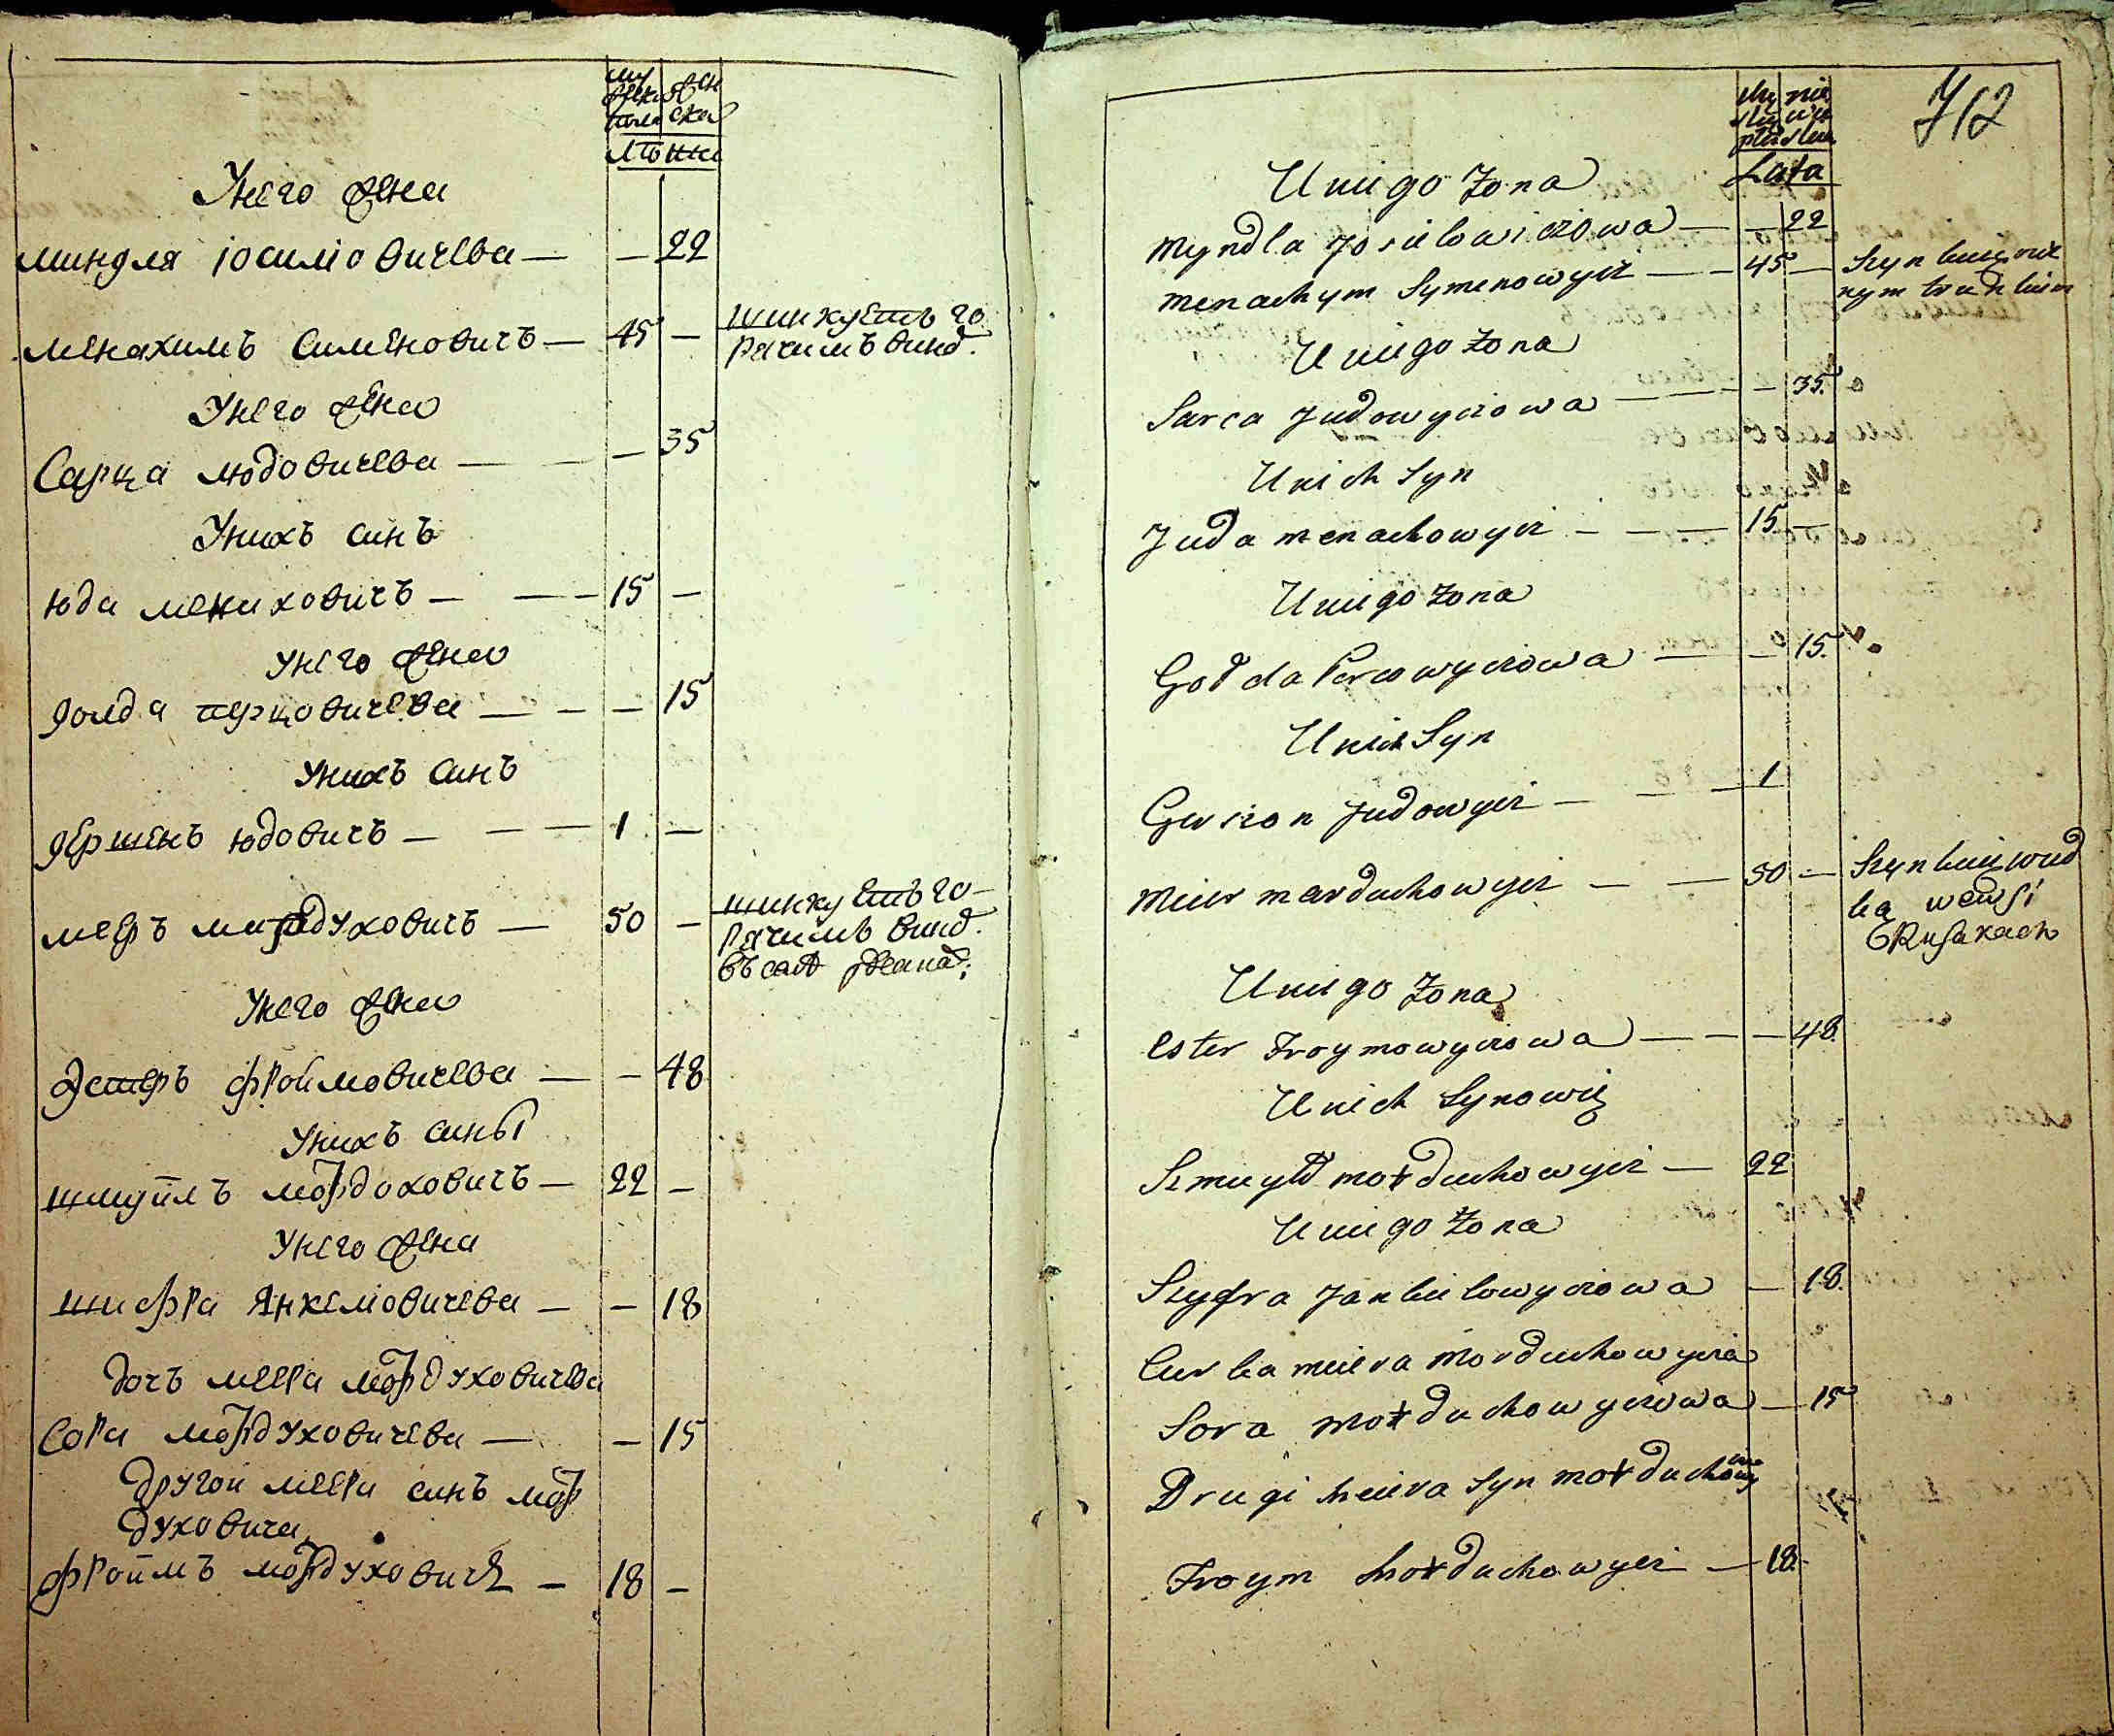 му
жеска
пола
жен
ска
лѣта
Унего жена
миндля іосиліовичева — — 22
менахимъ сименовичъ — 45 —
шинкуетъ го
рачимъ вино.
Унего жена
Сарца юдовичева — — 35
Унихъ синъ
юда менаховичъ — — — 15 —
унего жена
голда перцовичева — — — 15
унихъ синъ
гершенъ юдовичъ — — — 1 —
мееръ мордуховичъ — 50 —
шинкуетъ го-
рачимъ вино.
въ селѣ
Унего жена
Эстеръ фроимовичева — — 48
унихъ сины
шмуилъ мордоховичъ — 22 —
унего жена
шифра Янкеліовичева — — 18
дочъ меера мордуховичева
Сора мордуховичева — — 15
другой меера синъ мор
духовича
фроимъ мордуховичъ — 18 —
712
Lata
U niego Zona
Myndla Josielowiczowa — — 22
Menachym Symenowycz — — 45 —
Szynkuię
nym trunkiem
U niego Zona
Sarca Judowyczowa — — — 35.
U nich Syn
Juda menachowycz — — — 15. —
U niego Zona
Golda Percowyczowa — — 15.
U nich Syn
Gerszon Judowycz — — — 1
Meier marduchowycz — — 50 —
Szynkuię wud
ką we wsi
Rusakach
U niego Zona
Ester Froymowyczowa — — — 48.
U nich Synowie
Szmuyld morduchowycz — 22
U niego Zona
Szyfra Jankielowyczowa — 18.
Curka meiera Morduchowycza
Sora Morduchowyczowa — 15
Drugi Meiera Syn morduchowy
cza
Froym Morduchowycz — 18.